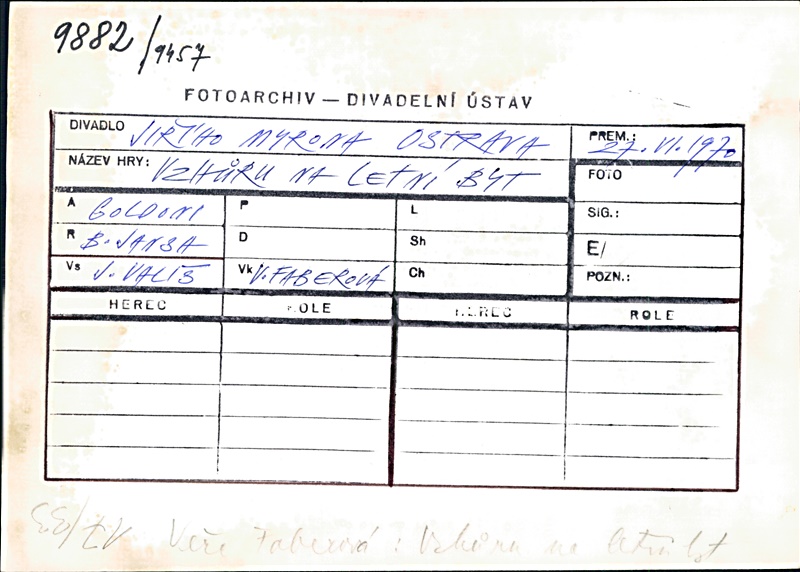 9882/9457
FOTOARCHIV — DIVADELNÍ ÚSTAV
DIVADLO JIŘÍHO MYRONA OSTRAVA PREM.: 27. VI. 1970
NÁZEV HRY: VZHŮRU NA LETNÍ BYT FOTO
A GOLDONI P L SIG.:
R B. JANSA D Sh E/
Vs J. VALIŠ Vk V. FABEROVÁ Ch POZN.:
HEREC ROLE HEREC ROLE
Faberová : Vzhůru na